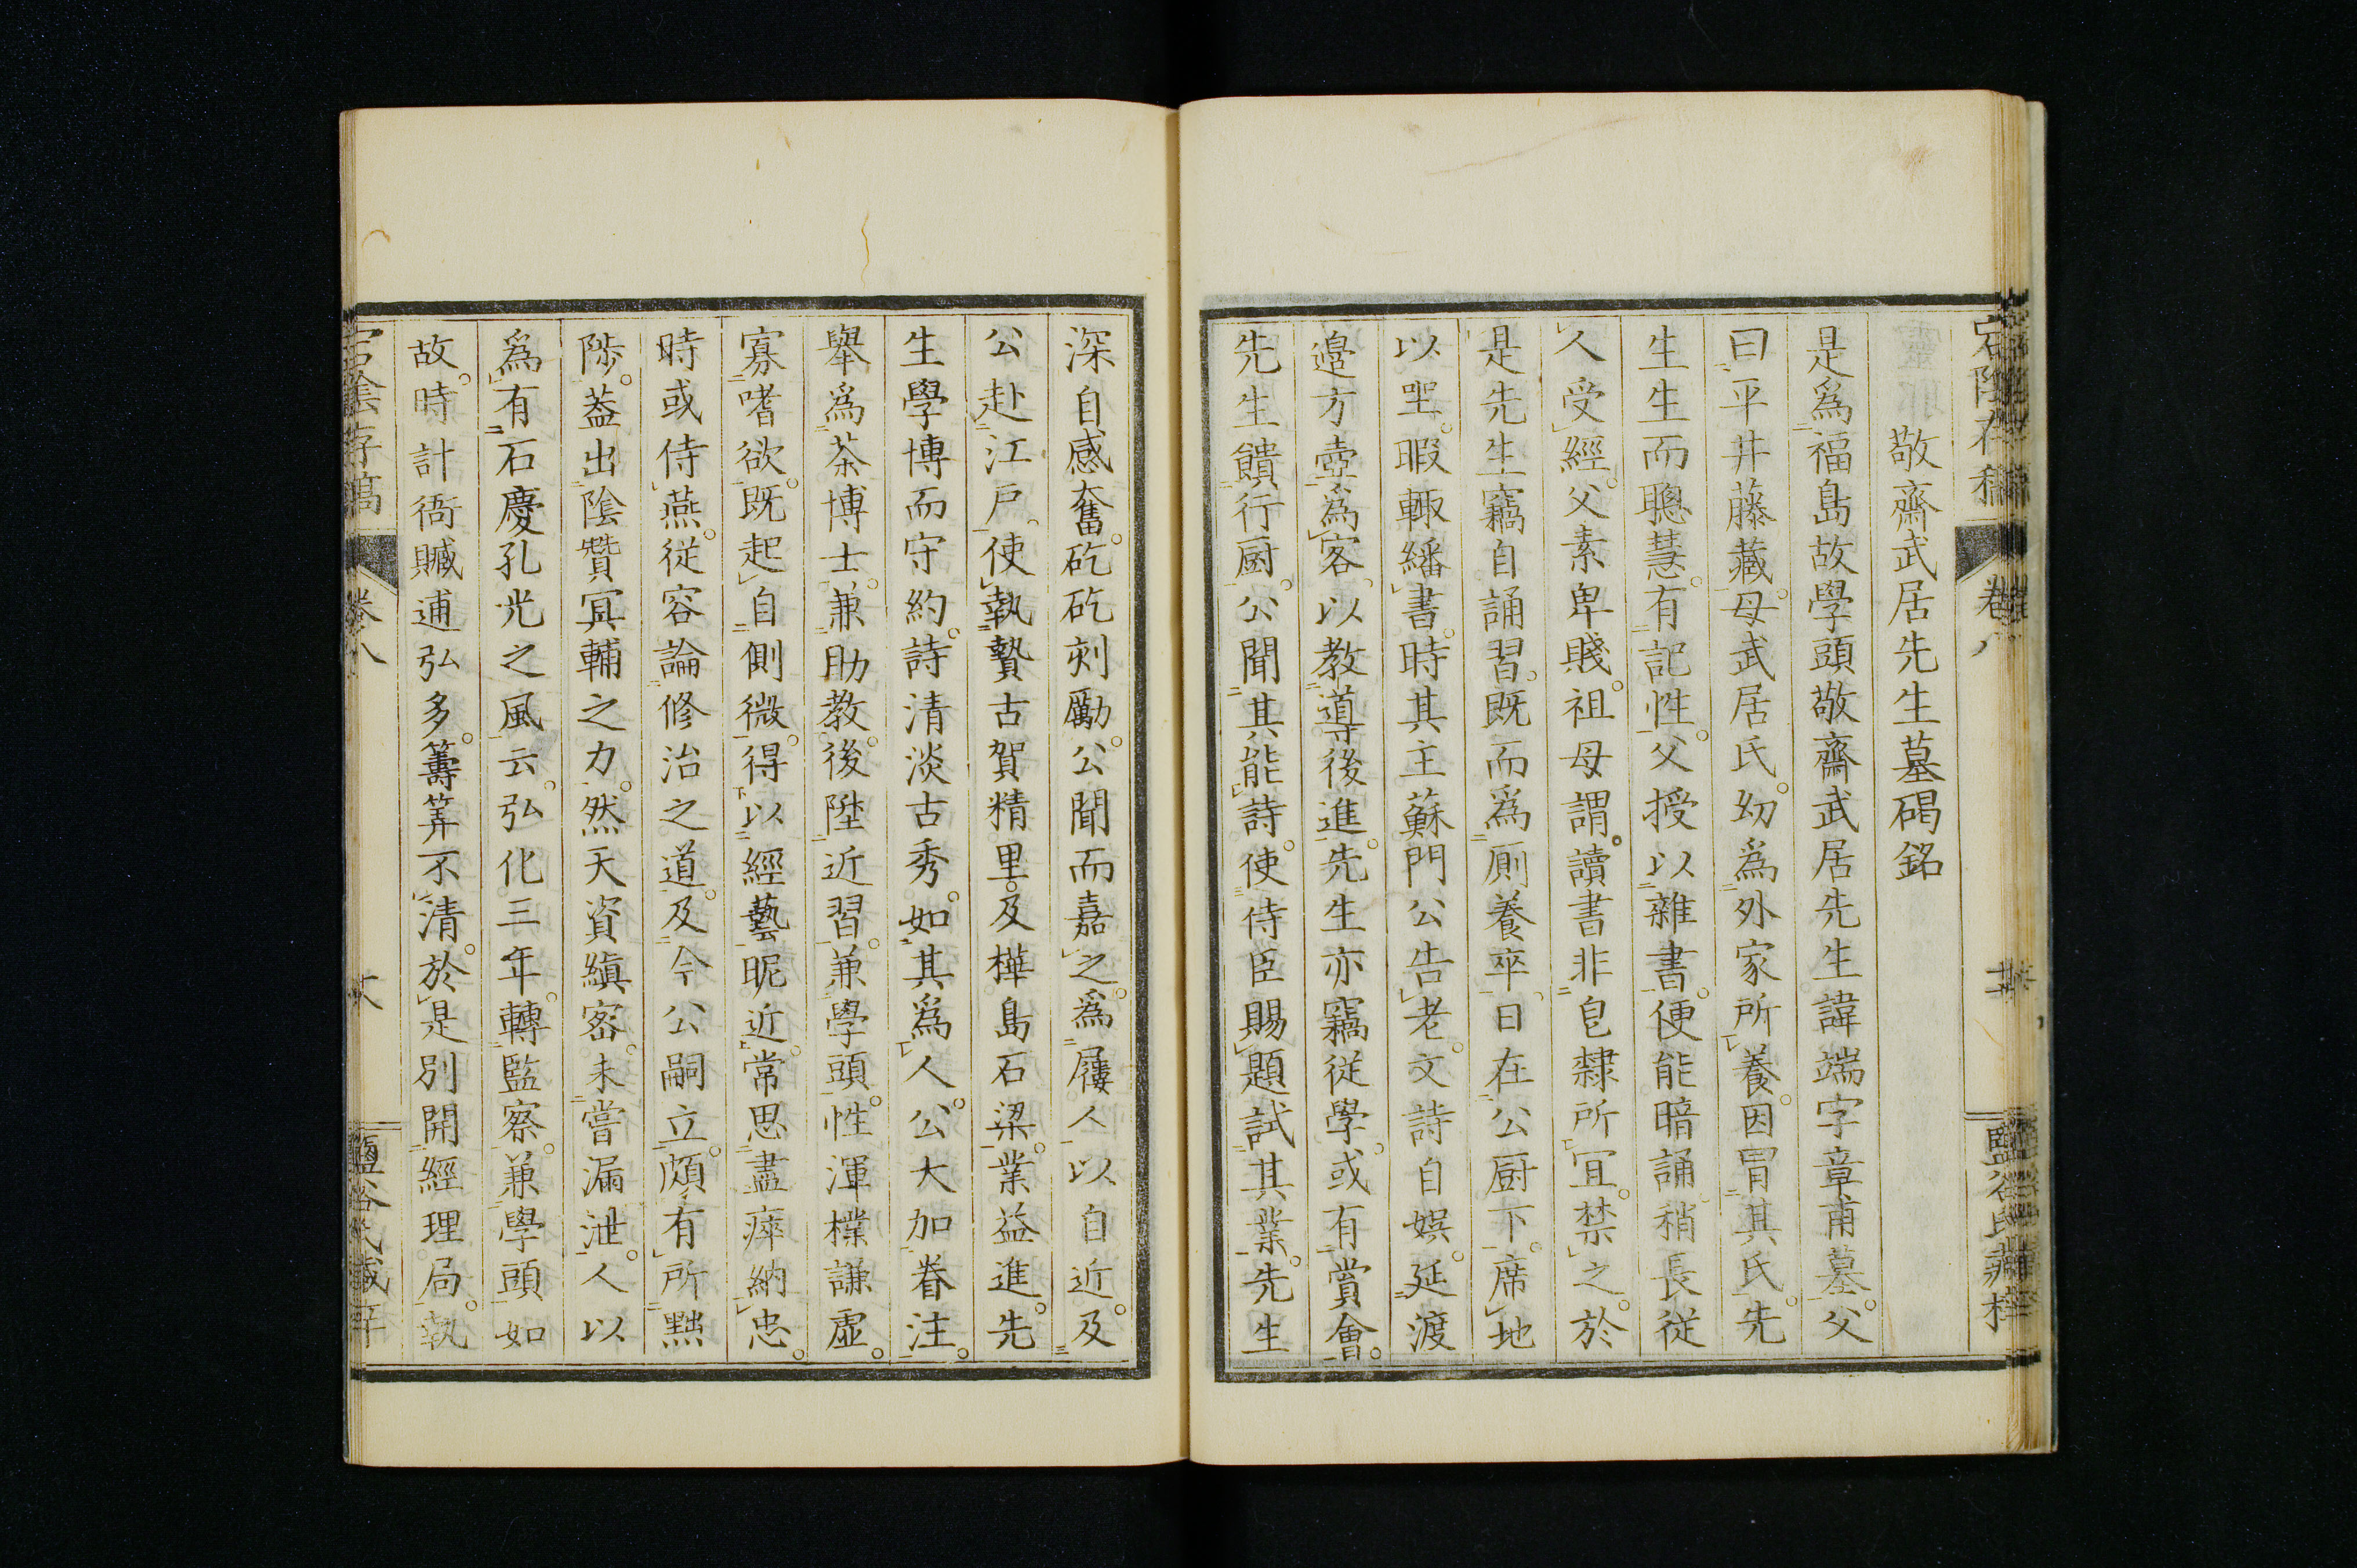 敬齋武居先生墓碣銘
是爲福島故學頭敬齋武居先生諱端字章甫墓。父
曰平井藤藏。母武居氏。幼爲外家所養。因冒其氏。先
生生而聰慧。有記性。父授以雜書。便能暗誦稍長従
人受經。父素卑賤。祖母謂。讀書非皂隸所宜。禁之。於
是先生竊自誦習。既而爲厠養卒。日在公厨下。席地
以坐。暇輙繙書。時其主蘇門公告老。文詩自娯。延渡
邉方壺爲客。以教導後進。先生亦竊従學。或有賞會。
先生饋行厨。公聞其能詩。使侍臣賜題試其業。先生
深自感奮。矻矻刻勵。公聞而嘉之。爲屨人以自近。及
公赴江戸。使執贄古賀精里。及樺島石梁。業益進。先
生學博而守約。詩清淡古秀。如其爲人。公大加眷注。
舉爲茶博士。兼助教。後陞近習。兼學頭。性渾樸謙虚。
寡嗜欲。既起自側微。得以經藝昵近。常思盡瘁納忠。
時或侍燕。従容論修治之道。及今公嗣立。頗有所黜
陟。葢出陰贊冥輔之力。然天資縝密。未嘗漏泄。人以
爲有石慶孔光之風云。弘化三年。轉監察。兼學頭如
故。時計衙贓逋弘多。籌筭不清。於是別開經理局。執
宕陰存稿
卷八
宕陰存稿
卷八
鹽谷氏藏